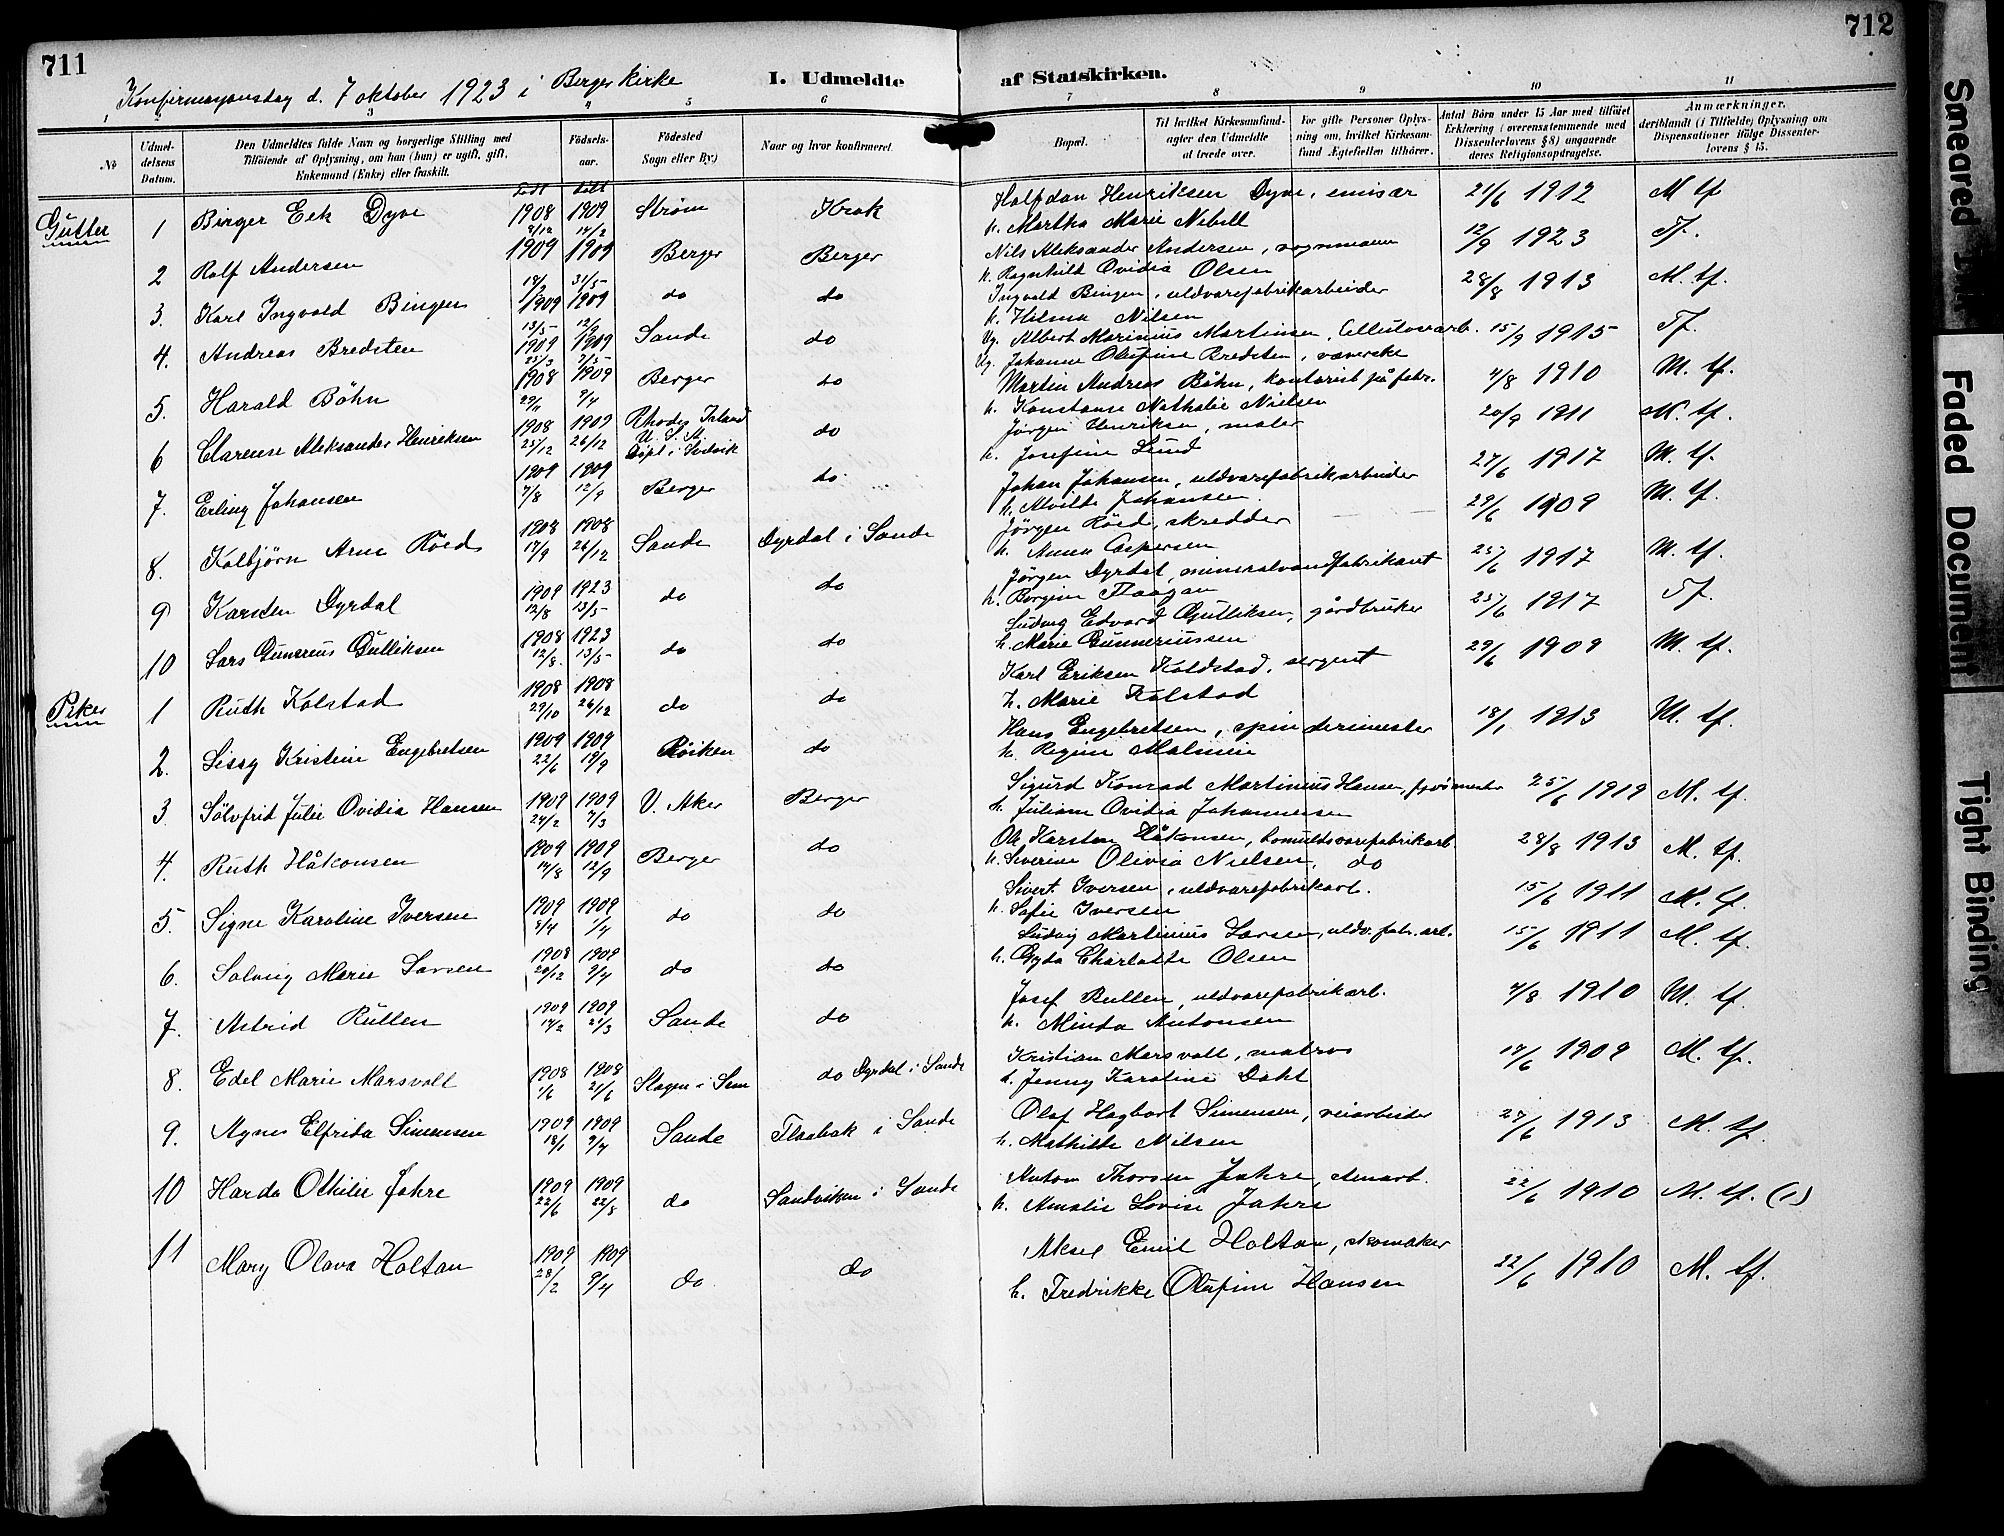 711
712
Konfirmasjonsdag d. 7 oktober 1923 i Berger kirke
I. Udmeldte af Statskirken.
1 2 3 4 5 6 7 8 9 10 11
No
Udmeldelsens Datum.
Den Udmeldtes fulde Navn og borgerlige Stilling med
Tilföiende af Oplysning, om han (hun) er ugift, gift,
Enkemand (Enke) eller fraskilt.
Födselsaar.
Födested
Sogn eller By)
Naar og hvor konfirmeret.
Bopæl.
Til hvilket Kirkesamfund agter den Udmeldte at træde over.
For gifte Personer Oplysning om, hvilket Kirkesamfund Ægtefællen tilhörer.
Antal Börn under 15 Aar med tilföiet
Erklæring (overensstemmende med
Dissenterlovens § 8) angaaende
deres Religionsopdragelse.
Anmærkninger,
deriblandt (i Tilfælde) Oplysning om
Dispensationer ifölge Dissenterlovens § 15.
född döbt
Gutter
1 Birger Eek Dyve 1908 8/12 1909 14/2 Strøm Krok Halfdan Henriksen Dyve, emisær 21/6 1912 M tf
h. Martha Marie Nebell
2 Rolf Andersen 1909 1909 31/5 Berger Berger Nils Aleksander Andersen, vognmann 12/9 1923 Tf.
h. Ragnhild Ovidia Olsen
3. Karl Ingvald Bingen 1909 13/5 1909 12/9 do do Ingvald Bingen, uldvarefabrikarbeider 28/8 1913 M. tf.
h. Helma Nilsen
4. Andreas Bredsten 1909 1909 2/5 Sande do Ug. Albert Marinius Martinsen, Cellulosearb. 15/9 1915 Tf.
Ug. Johanne Olufine Bredsten, væverske
5. Harald Böhn 1908 29/11 1909 9/4 Berger do Martin Andreas Böhn, kontorist på fabr. 4/8 1910 M. tf.
h. Konstanse Nathalie Nielsen
6 Clarense Aleksander Henriksen 1908 25/12 1909 26/12 Rhodes Island
U. S. A.
do Jørgen Henriksen, maler 20/9 1911 M. tf.
h. Josefine Lund
7. Erling Johansen 1909 7/8 1909 12/9 Berger do Johan Johansen, uldvarefabrikarbeider 27/6 1917 M. tf.
h. Alvilde Johansen
8. Kolbjörn Arne Röed 1908 17/9 1908 26/12 Sande Dyrdal i Sande Jørgen Röed, skredder 29/6 1909 M. tf.
h. Anna Caspersen
9 Karsten Dyrdal 1909 12/8 1923 13/5 do do Jørgen Dyrdal, mineralvandfabrikant 25/6 1917 M. tf.
h. Bergine Haagan
10 Lars Gunerius Gulliksen 1908 12/8 1923 13/5 do do Ludvig Edvard Gulliksen, gårdbruker 25/6 1917 Tf.
h. Marie Gunneriussen
Piker
1 Ruth Kolstad 1908 29/10 1908 26/12 do do Karl Eriksen Koldstad, sergent 29/6 1909 M. tf.
h. Marie Kolstad
2. Sissy Kristine Engebretsen 1909 22/6 1909 19/9 Röiken do Hans Engebretsen, spinderimester 18/1 1913 M. tf.
h. Regine
3. Sölvfrid Julie Ovidia Hansen 1909 24/2 1909 7/3 V. Aker Berger Sigurd Konrad Martinius Hansen, 25/6 1919 M. tf.
h. Juliane Ovidia Johannessen
4. Ruth Håkonsen 1909 14/8 1909 12/9 Berger do Ole Karsten Håkonsen, 28/8 1913 M. tf.
h. Severine Olivia Nielsen, do
5. Signe Karoline Iversen 1909 1909 1/4 do do Sivert Iversen, uldvarefabrikarb. 15/6 1911 M. tf.
h. Sofie Iversen
6. Solveig Marie Larsen 1908 29/12 1909 9/4 do do Ludvig Martinius Larsen, uldv. fabr. arb. 15/6 1911 M. tf.
h. Gyda Charlotte Olsen
7. Astrid Rullen 1909 14/2 1909 21/3 Sande do Josef Rullen, uldvarefabrikarb. 4/8 1910 M. tf.
h. Minda Antonsen
8. Edel Marie Marsvall 1908 1/6 1908 21/6 Slagen i Sem do Dyrdal i Sande Kristian Marsvall, matros 17/6 1909 M. tf.
h. Jenny Karoline Dahl
9. Agnes Elfrida Simensen 1909 18/1 1909 9/4 Sande i Sande Olaf Hagbart Simensen, veiarbeider 27/6 1913 M. tf.
h. Mathilde Nilsen
10 Harda Othilie Jahre 1909 22/6 1909 22/8 do Sandviken i Sande Anton Thorsen Jahre, 22/6 1910 M. tf. (1)
h. Amalie Lovise Jahre
11 Mary Olava Holtan 1909 28/2 1909 9/4 do do Aksel Emil Holtan, skomaker 22/6 1910 M. tf.
h. Fredrikke Olufine Hansen
Smeared
Faded Document
Tight Binding